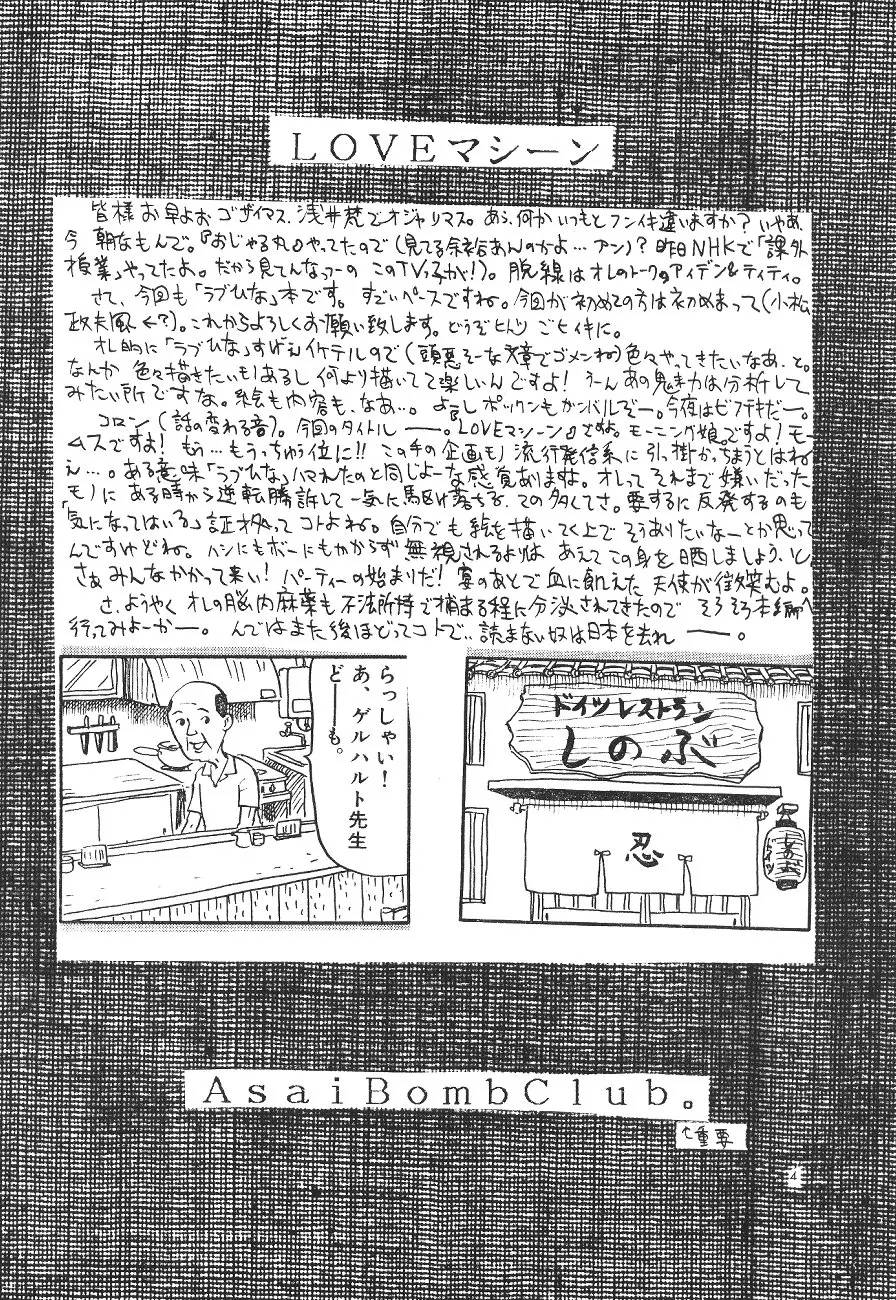 LOVEマシーン
皆様お早よおゴザイマス、浅井梵でオジャリマス。あら、何かいつもとフンイキ違いますか?いやあ、
今朝なもんで。『おじゃる丸』やってたので(見てる余裕あんのかよ…アン)?昨日NHKで「課外
授業」やってたよ。だから見てんなっつーの このTVっ子が!)。脱線はオレのトークのアイデン&ティティ。
さて、今回も「ラブひな」本です。すごいペースですね。今回が初めての方は初めまして(小松
政夫風←?)。これからよろしくお願い致します。どうぞヒトツ ごヒイキに。
オレ的に「ラブひな」すげえイケテルので(頭悪そーな文章でゴメンね)色々やってきたいなあ、と。
なんか 色々描きたいモノあるし何より描いてて楽しいんですよ!うーんあの魅力は分析して
みたい所ですな。絵も内容も、なあ…。よしボックンもガンバルぞー。今夜はビフテキだー。
コロン(話の変わる音)。今回のタイトル――。『LOVEマシーン』ですよ。モーニング娘。ですよ!モー
ムスですよ!もう…もうっちゅう位に!!この手の企画モノ流行発信系に引っ掛かっちまうとはね
え…。ある意味「ラブひな」ハマれたのと同じよーな感覚ありますよ。オレってそれまで嫌いだった
モノに ある時から逆転勝訴して一気に駆け落ちる、ての多くてさ。要するに反発するのも
「気になってはいる」証拠ってコトよね。自分でも絵を描いてく上でそうありたいなーとか思って
んですけどね。ハシにもボーにもかからず無視されるよりは あえてこの身を晒しましょう、と。
さあみんなかかって来い!パーティーの始まりだ!宴のあとで血に飢えた 天使が微笑むよ。
さ、ようやく オレの脳内麻薬も不法所持で捕まる程に分泌されてきたので そろそろ本編へ
行ってみよーかー。んではまた後ほどってコトで‥読まない奴は日本を去れ――。
ドイツレストラン
しのぶ
忍
ドイツ
らっしゃい!
あ、ゲルハルト先生
ど――も。
AsaiBombClub。
↑重要
4